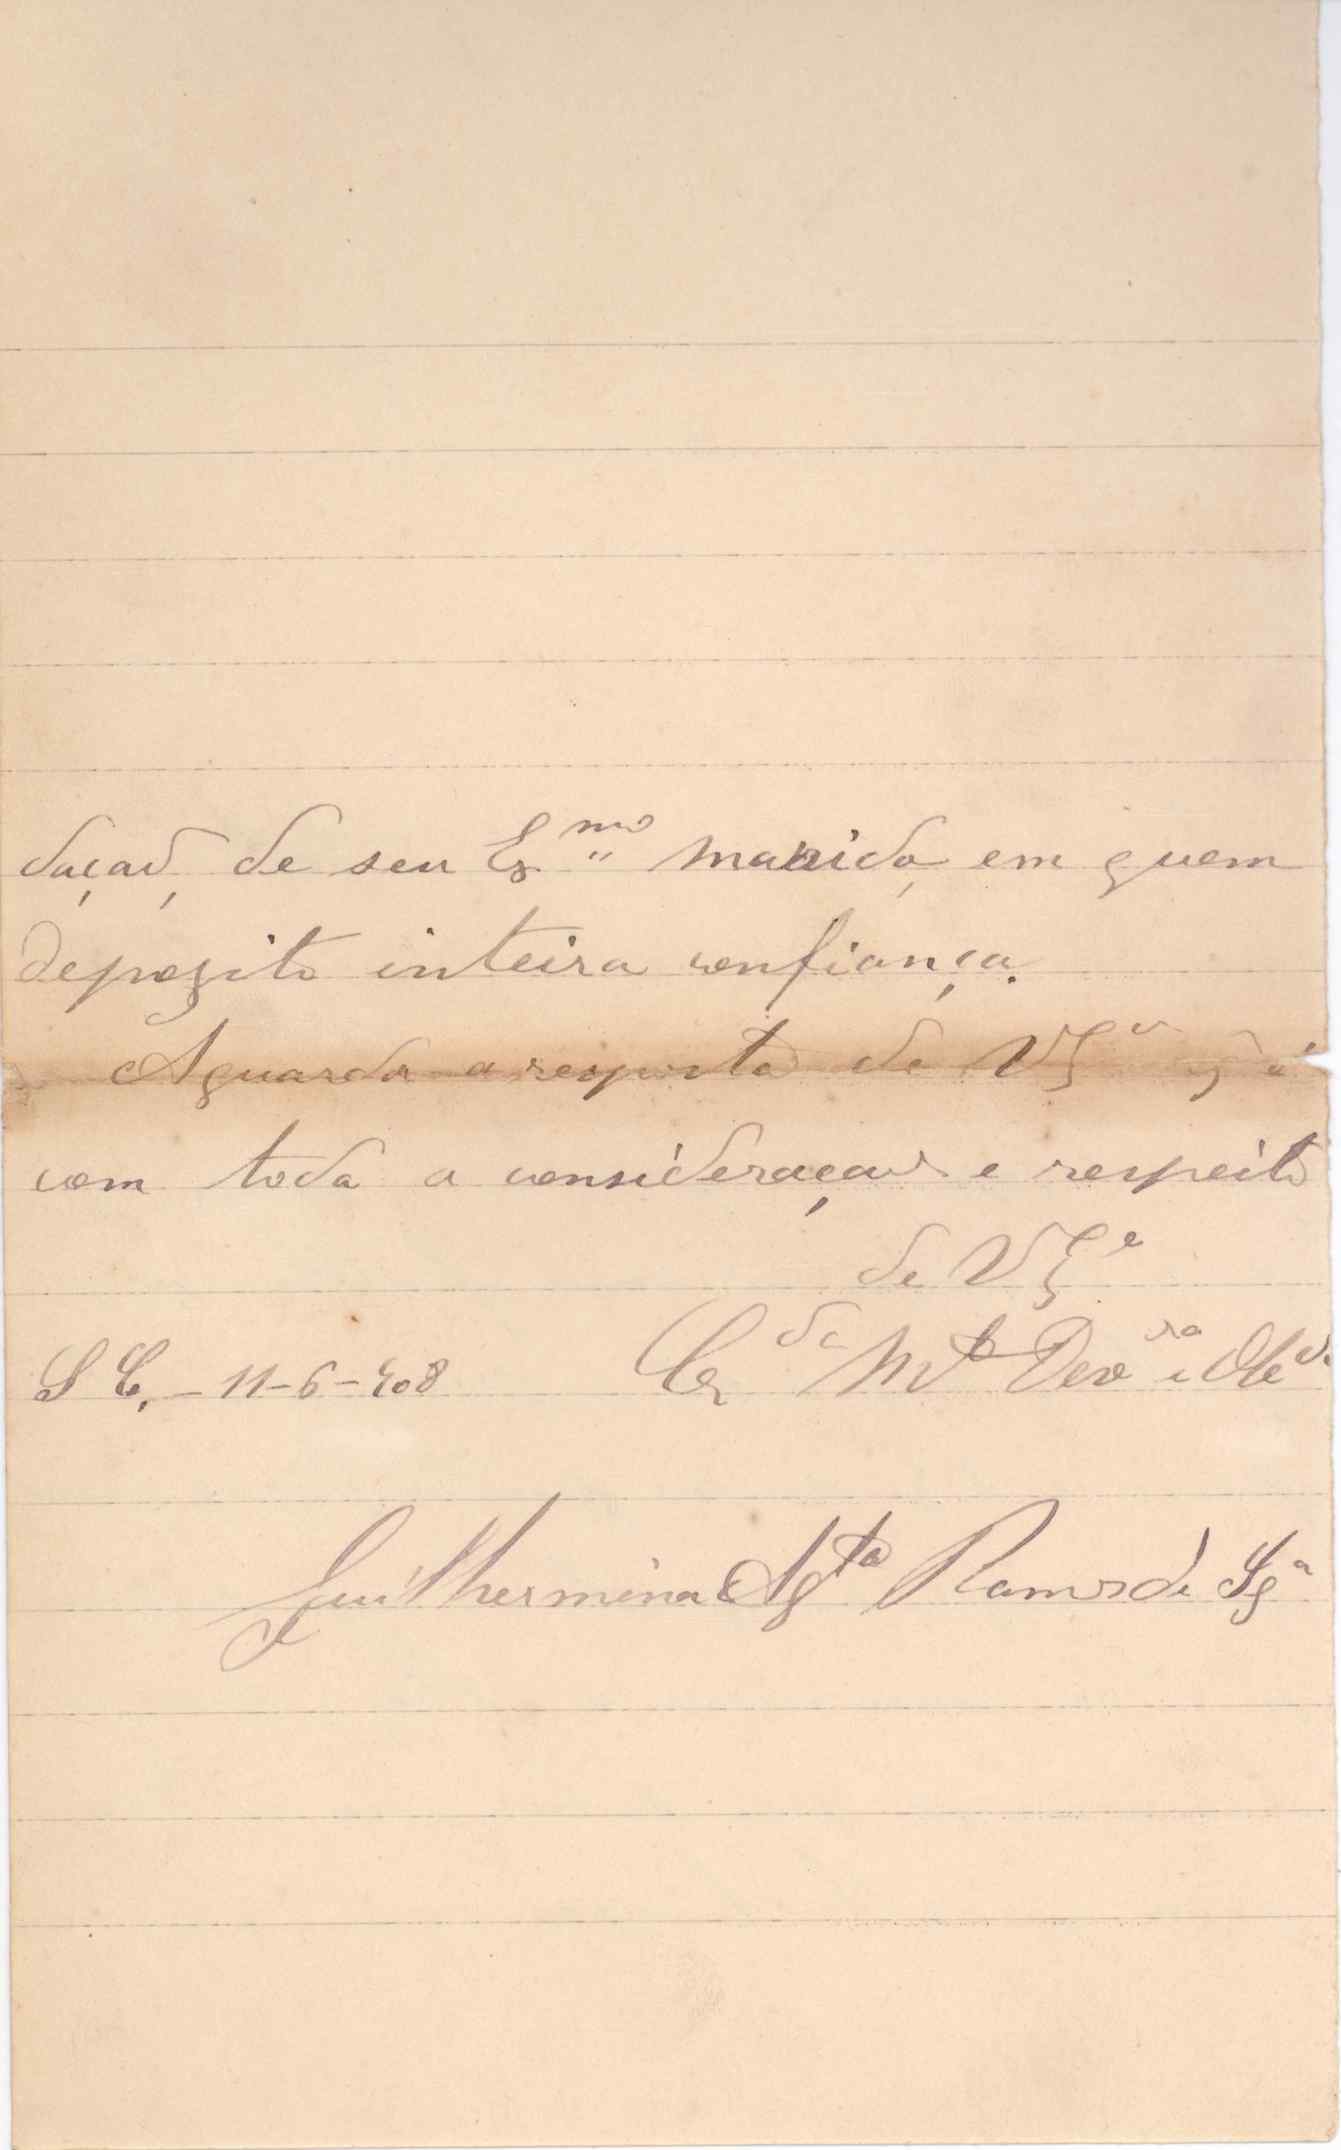 dação, de seu Ex.mo marido, em quem
depozito inteira confiança.
Aguarda a resposta de VEx.a
com toda a consideração e respeito
de VEx.a
S C. - 11-6-908 Cr.da Mt.o Dev.ra e
Guilhermina Ag.ta Ramos de Sz.a